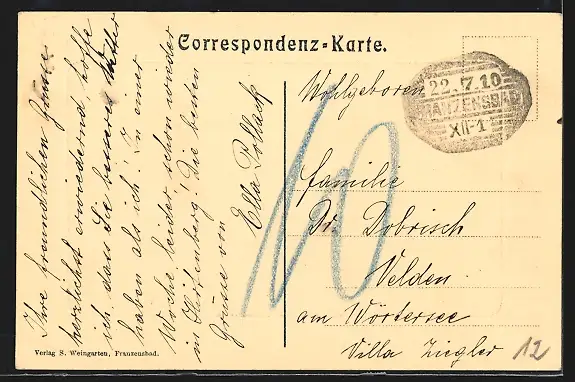 Correspondenz-Karte.
Ihre freundlichen Grüsse
herzlichst erwiedernd, hoffe
ich dass Sie besseres Wetter
haben als ich. In einer
Woche leider schon wieder
in Hirtenberg! Die besten
Grüsse von
Ella Pollack
Wohlgeboren
Familie
Dr. Dobrisch
Velden
am Wörtersee
Villa Ziegler
22.7.10
FRANZENSBAD
XII-1
10
12
Verlag S. Weingarten, Franzensbad.